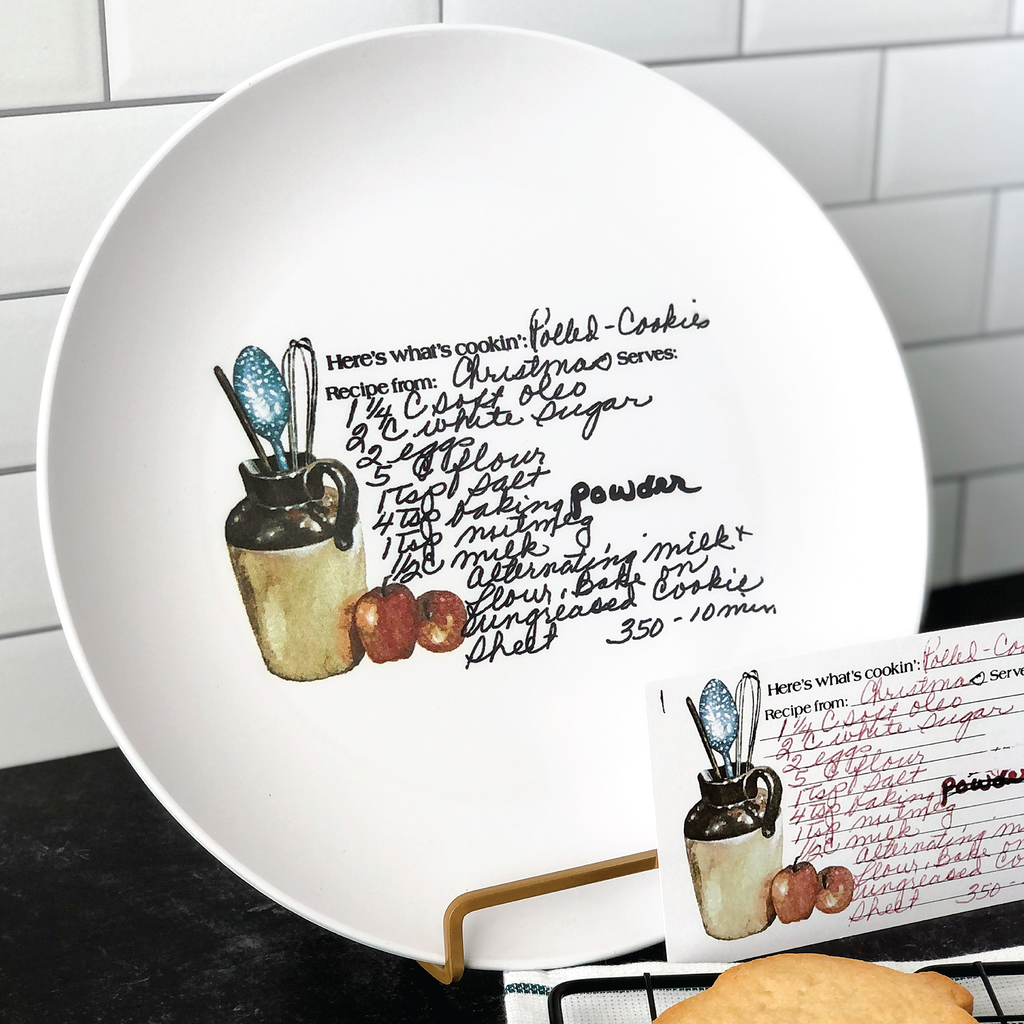 Here's what's cookin': Rolled-Cookies
Recipe from: Christmas Serves:
1 1/4 C soft oleo
2 C white sugar
2 eggs
5 C flour
1 Tsp salt
4 Tsp baking powder
1 Tsp nutmeg
1/2 C milk
Alternating milk +
flour, Bake on
ungreased Cookie
Sheet 350-10 min
Here's what's cookin': Rolled-Coo
Recipe from: Christmas Serve
1 1/4 C soft oleo
2 C white sugar
2 eggs
5 C flour
1 Tsp salt
4 Tsp baking powder
1 Tsp nutmeg
1/2 C milk
Alternating m
flour, Bake on
ungreased Co
Sheet 350-